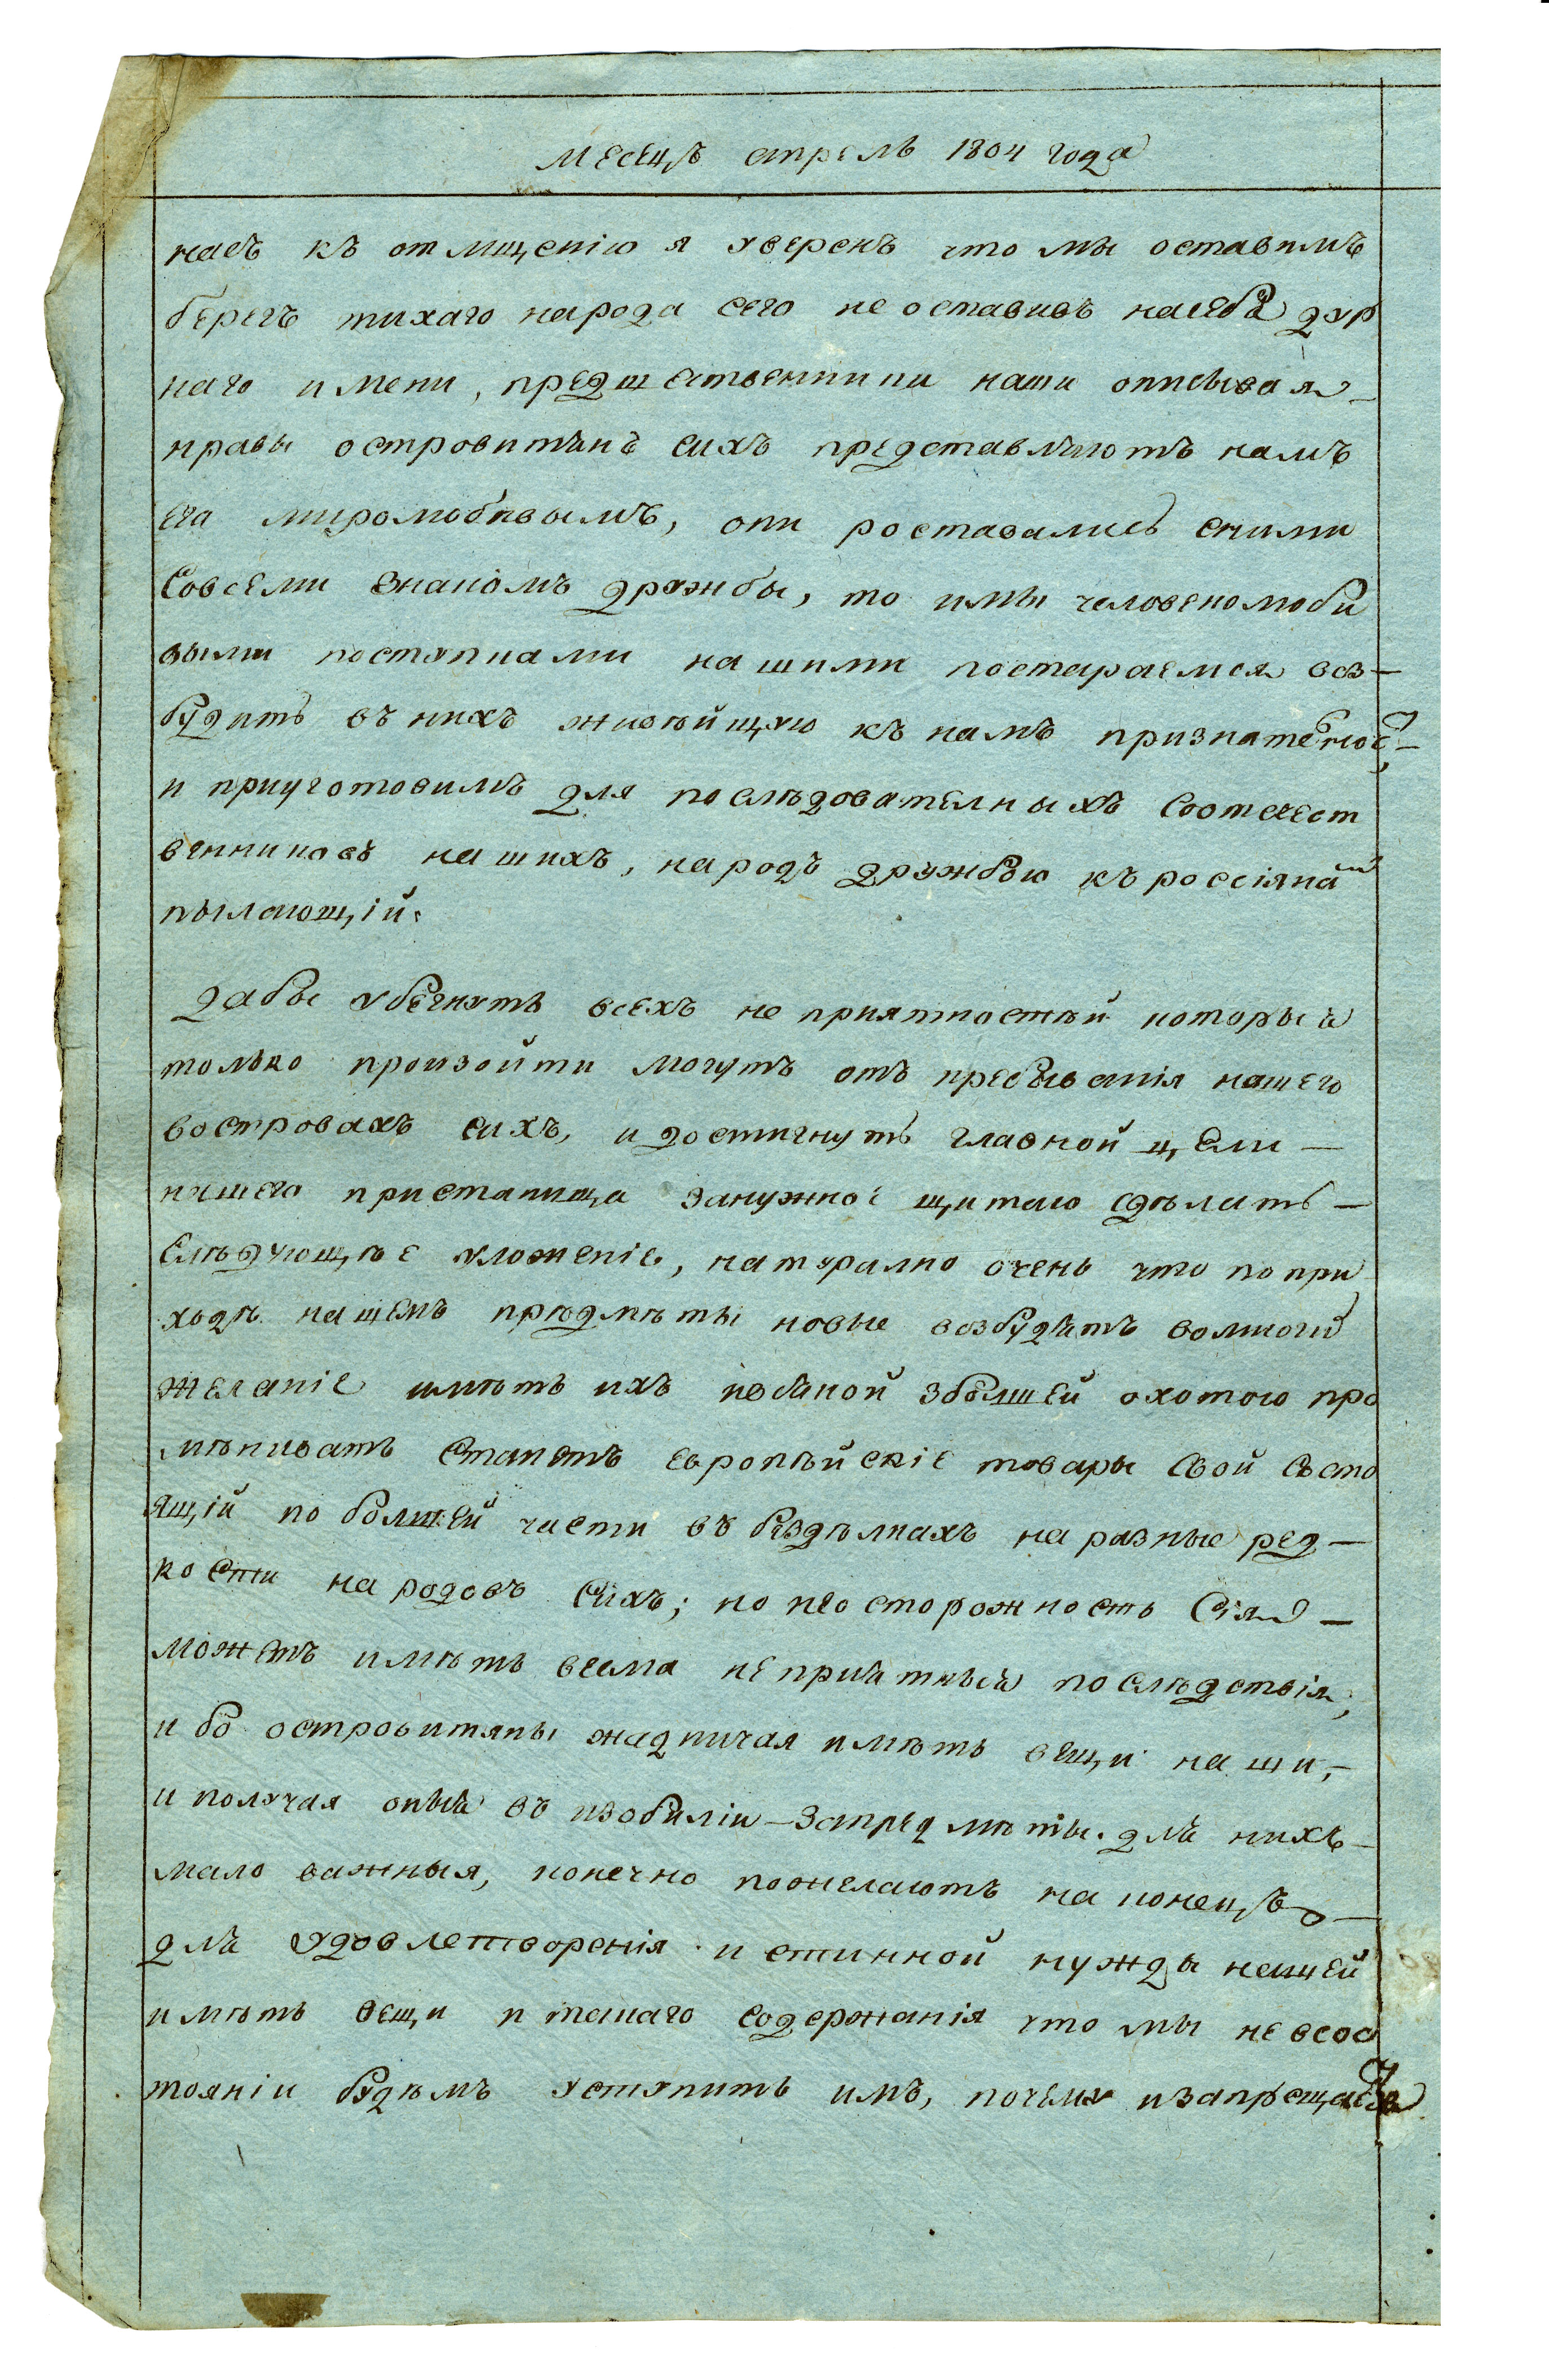 месецъ апрель 1804 года
насъ къ отмщенію я уверенъ что мы оставимъ
берегъ тихаго народа сего не оставивъ насебѣ дур
наго имени, предшественники наши описывая
нравы островитянъ сихъ представляютъ намъ
его миролюбивымъ, они роставались сними
совсеми знакомъ дружбы, то имы человеколюби
выми поступками нашими постараемся воз-
будить въ нихъ живѣйщую къ намъ признательнос,-
и приуготовимъ для послѣдователныхъ соотечест
венниковъ нашихъ, народъ дружбою къ россіянам
пылающій.
дабы убегнуть всехъ не приятностѣй которыя
только произойти могутъ отъ пребыванія нашего
вострoвахъ сихъ, и достигнуть главной цели -
нашего пристанища занужное щитаю сдѣлать -
слѣдующѣе уложеніе, натурално очень что по при
ходѣ нащемъ прѣдмѣты новые возбудятъ вомногий
желаніе имѣть ихъ и вы мной збо́лшей охотою про
мѣнивать станетъ европѣйскіе товары свой състо
ящій по болшей части въ бездѣлкахъ на разные ред-
кости народовъ сихъ; но неосторожность сія -
можетъ имѣть весма неприятныя послѣдствія,
и бо островитяны жадничая имѣть вещи наши, -
и получая оныя въ изобиліи - запредмѣты. для нихъ -
мало важныя, конечно пожелаютъ на конецъ -
для удовлетворенія истинной нужды нащей
имѣть вещи и такаго содержанія что мы не всос
тояніи будѣмъ уступить имъ, почему изапрещается